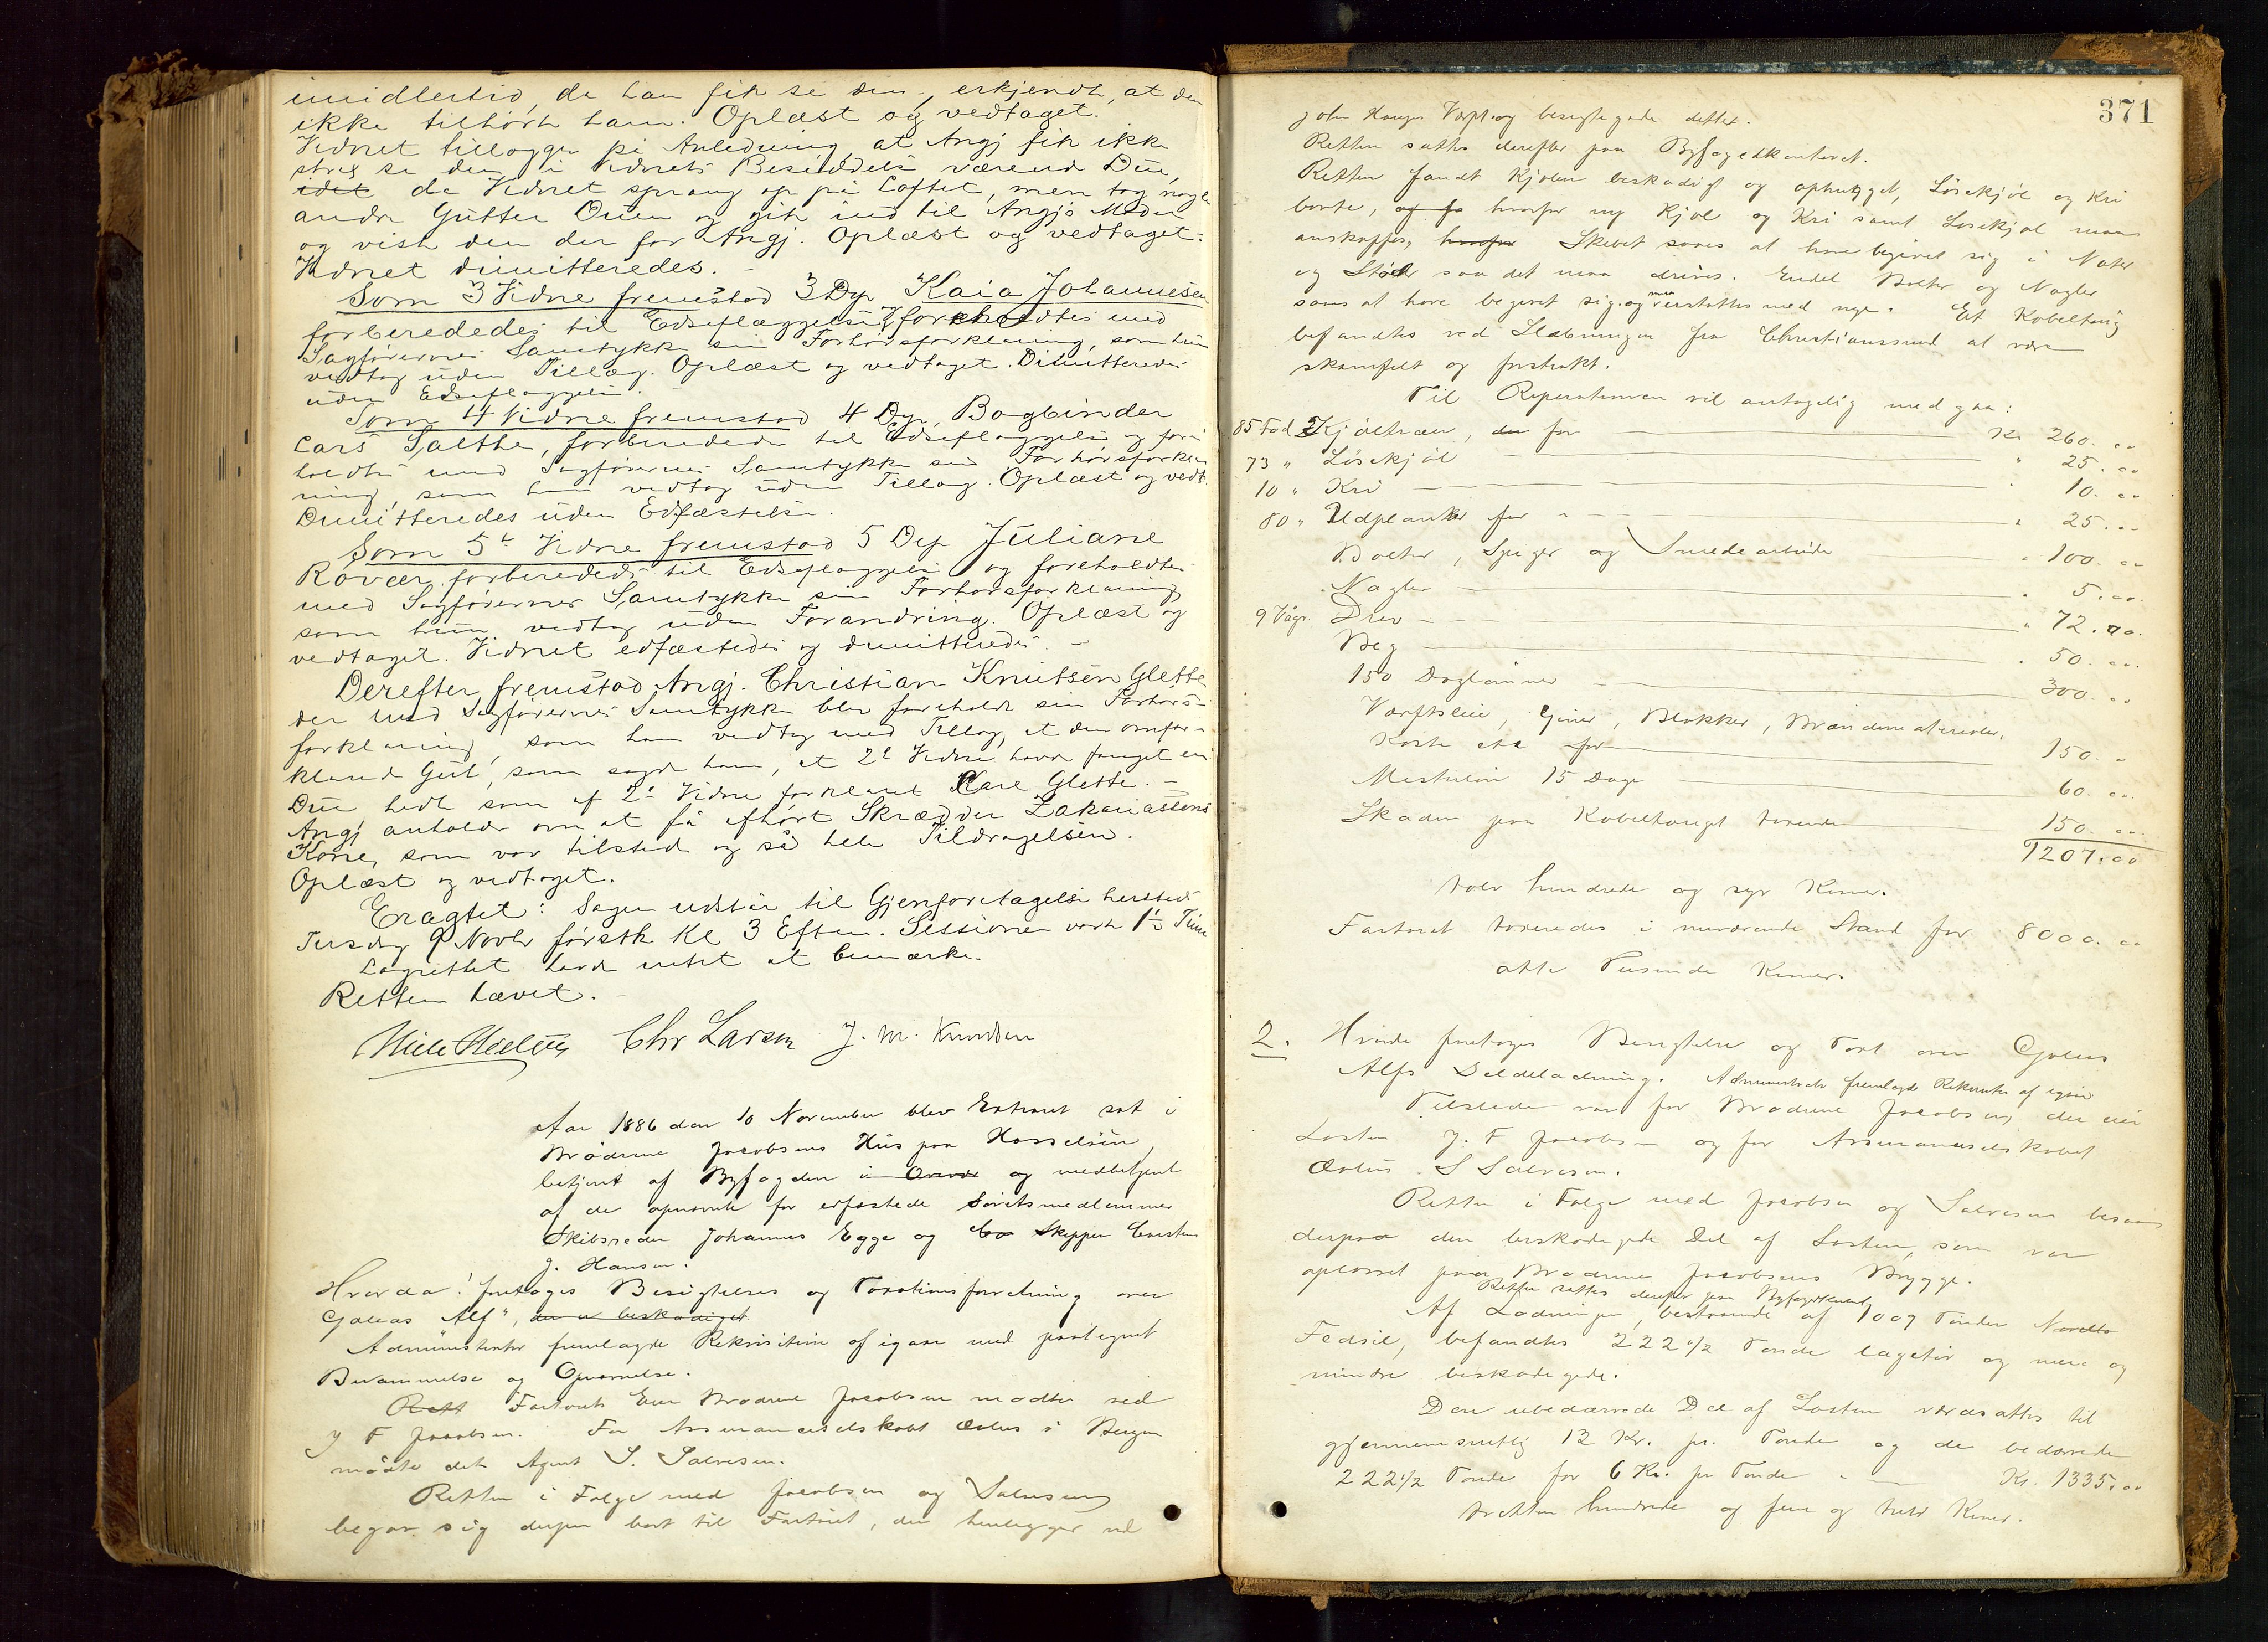 imidlertid, da han fik se den, erkjendte, at den
ikke tilhørte ham. Oplæst og vedtaget.
Vidnet tillægger på Anledning, at Angj fik ikke
strax se den i Vidnets Besiddelse værende Due,
idet da Vidnet sprang op på Loftet, men tog nogle
andre Gutter Duen og gik ind til Angjs Moder
og viste den der for Angj. Oplæst og vedtaget.
Vidnet dimitteredes.
Som 3 Vidne fremstod 3 Dep Kaia Johannesen
forberededes til Edsaflæggelse og foreholdtes med
Sagførernes Samtykke sin Forhørsforklaring, som hun
vedtog uden Tillæg. Oplæst og vedtaget. Dimitteredes
uden Edsaflæggelse.
Som 4 Vidne fremstod 4 Dep, Bogbinder
Lars Salthe, forberededes til Edsaflæggelse og fore-
holdtes med Sagførernes Samtykke sin Forhørsforkla-
ring, som han vedtog uden Tillæg. Oplæst og vedt.
Dimitteredes uden Edfæstelse.
Som 5t Vidne fremstod 5 Dep Juliane
Røvær forberededs til Edsaflæggelse og foreholdtes
med Sagførernes Samtykke sin Forhørsforklaring
som hun vedtog uden Forandring. Oplæst og
vedtaget. Vidnet edfæstedes og dimitteredes. –
Derefter fremstod Angj. Christian Knutsen Glette
der med Sagførernes Samtykke blev foreholdt sin Forhørs-
forklaring, som han vedtog med Tillæg, at den omfor-
klarede Gut, som sagde ham, at 2t Vidne havde fanget en
Due hedte som af 2t Vidne forklaret Kare Glette. –
Angj anholdt om at få afhørt Skrædder Zakariassens
Kone, som var tilstede og så hele Tildragelsen.
Oplæst og vedtaget.
Eragtet: Sagen udstår til Gjenforetagelse hersteds
Tirsdag 9 Novbr førstk Kl 3 Efterm. Sessionen varte 1½ Time
Lagrettet havde intet at bemærke.
Retten hævet.
Chr Larsen J. M. Knudsen
Aar 1886 den 10 November blev Extraret sat i
Brødrene Jacobsens Hus paa Hasseløen,
betjent af Byfogden i Overvær og medbetjent
af de opnævnte før edfæstede Søretsmedlemmer
Skibsreder Johannes Egge og Ca Skipper Carsten
J. Hansen.
Hvorda! foretoges Besigtelses og Taxationsforretning over
Galeas "Alf", der er beskadiget
Administrator fremlagde Rekvisition af igaar med paategnet
Berammelse og Opnævnelse.
Rett Fartøiets Eier Brødrene Jacobsen mødte ved
J F Jacobsen. For Assuranceselskabet Æolus i Bergen
mødte dets Agent S. Salvesen.
Retten i Følge med Jacobsen og Salvesen
begav sig derpaa bort til Fartøiet, der henligger ved
371
John Hauges Værft og besigtigede dettet.
Retten sattes derefter paa Byfogedkontoret.
Retten fandt Kjølen beskadiget og ophugget, Løsekjøl og Kri
borte, og fo hvorfor ny Kjøl og Kri samt Løsekjøl maa
anskaffes, hvorfor Skibet saaes at have begivet sig i Nater
og Stød saa det maa drives. Endel Bolter og Nagler
saaes at have begivet sig og maa erstattes med nye. Et Kabeltoug
befandtes ved Slæbningen fra Christianssund at være
skamfilt og forstrakt.
Til Reparationen vil antagelig medgaa:
85 Fod Kjøltræer, der for Kr 260. 00
73 " Løsekjøl " 25. 00
10 " Kri " 10. 00
80 " Udplanker for " 25. 00
Bolter, Spiger og Smedearbeide " 100. 00
Nagler " 5. 00
9 Våger Drev " 72. 00
Beg " 50. 00
150 Daglønner 300. 00
Værftsleie, Giner, Blokker, Brændematerialer,
Koste etc for 150. "
Mesterløn 15 Dage 60. 00
Skaden paa Kabeltouget taxeredes 150. 00
1207. 00
tolv hundrede og syv Kroner.
Fartøiet taxeredes i nuværende Stand for 8000. 00
otte Tusinde Kroner.
2. Hvorda foretoges Besigtelse og Taxt over Galeas
Alfs Sildeladning. Administrator fremlagde Rekvisition af igaar
Tilstede var for Brødrene Jacobsen, der eier
Lasten J. F Jacobsen og for Assuranceselskabet
Æolus S Salvesen.
Retten i Følge med Jacobsen og Salvesen besaa
derpaa den beskadigede Del af Lasten, som var
oplosset paa Brødrene Jacobsens Brygge.
Retten sattes derefter paa Byfogedkontoret
Af Ladningen, bestaaende af 1009 Tønder Nordla
Fedsil, befandtes 222 1/2 Tønde lagetør og mere og
mindre beskadigede.
Den ubedærvede Del af Lasten værdsattes til
gjennemsnitlig 12 Kr. pr. Tønde og de bedærvede
222 1/2 Tønde for 6 Kr. pr Tønde " Kr. 1335. 00
tretten hundrede og fem og treti Kroner.